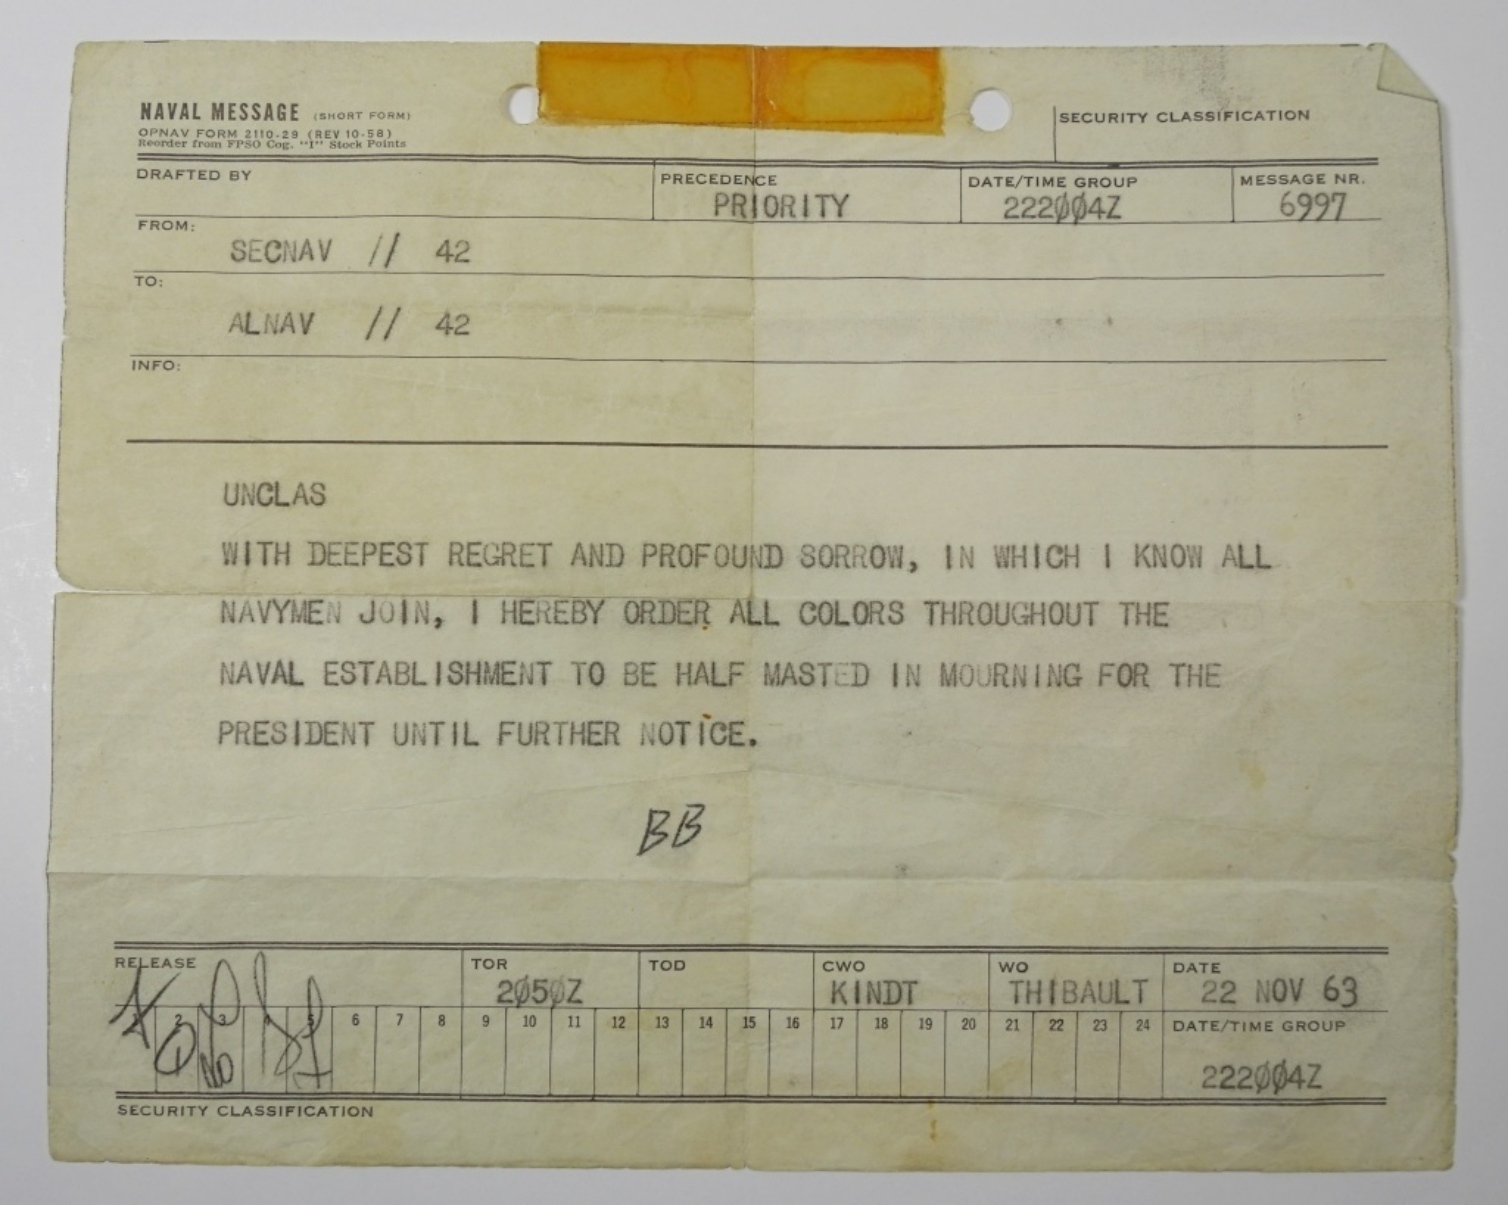 NAVAL MESSAGE (SHORT FORM)
OPNAV FORM 2110-29 (REV 10-58)
Reorder from FPSO Cog. "I" Stock Points
SECURITY CLASSIFICATION
DRAFTED BY
PRECEDENCE
PRIORITY
DATE/TIME GROUP
222ØØ4Z
MESSAGE NR.
6997
FROM:
SECNAV // 42
TO:
ALNAV // 42
INFO:
UNCLAS
WITH DEEPEST REGRET AND PROFOUND SORROW, IN WHICH I KNOW ALL
NAVYMEN JOIN, I HEREBY ORDER ALL COLORS THROUGHOUT THE
NAVAL ESTABLISHMENT TO BE HALF MASTED IN MOURNING FOR THE
PRESIDENT UNTIL FURTHER NOTICE.
BB
RELEASE
TOR
2Ø5ØZ
TOD
CWO
KINDT
WO
THIBAULT
DATE
22 NOV 63
2 3 4 5 6 7 8 9 10 11 12 13 14 15 16 17 18 19 20 21 22 23 24
DATE/TIME GROUP
222ØØ4Z
SECURITY CLASSIFICATION